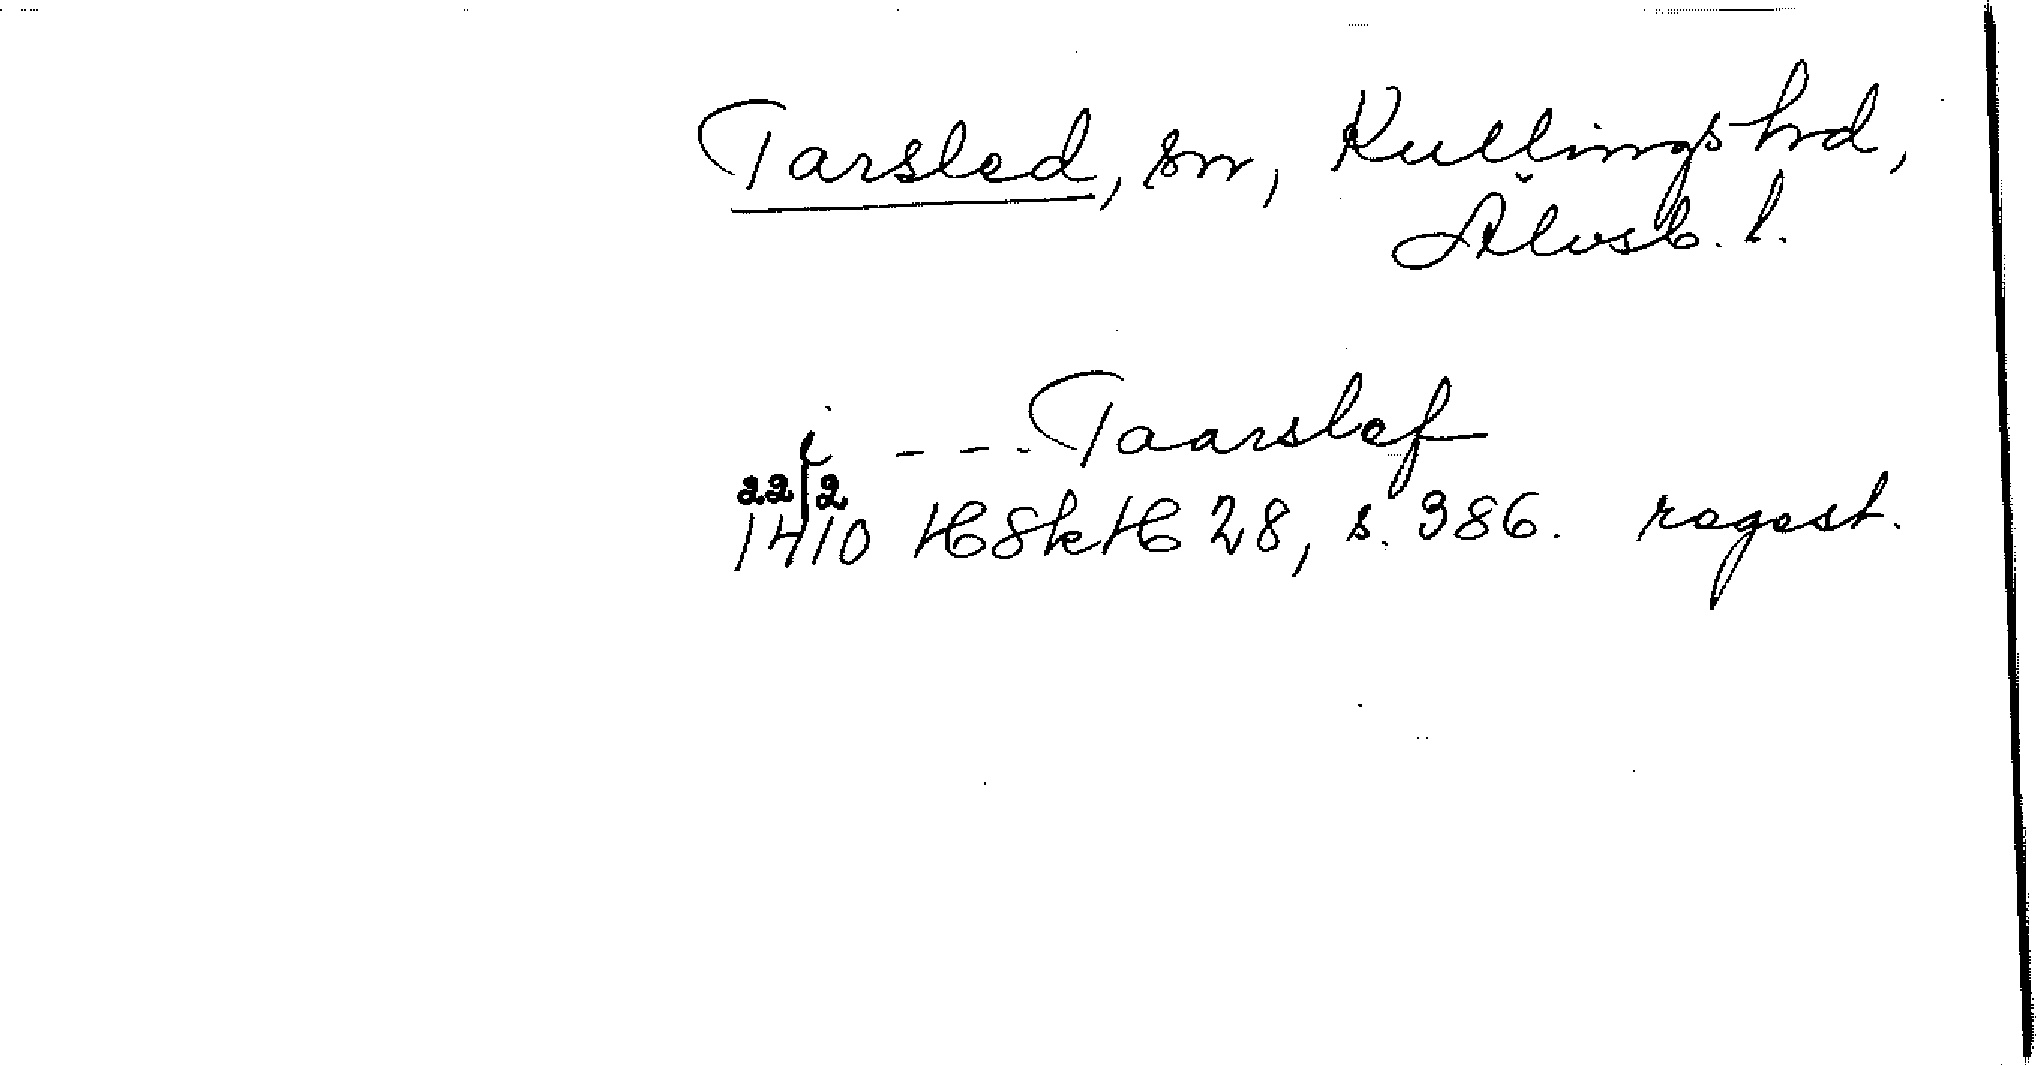 Tarsled, sn, Kullings hrd,
Älvsb. l.
i - - - Taarslef
22/2
1410 HSkH 28, s. 386. regest.